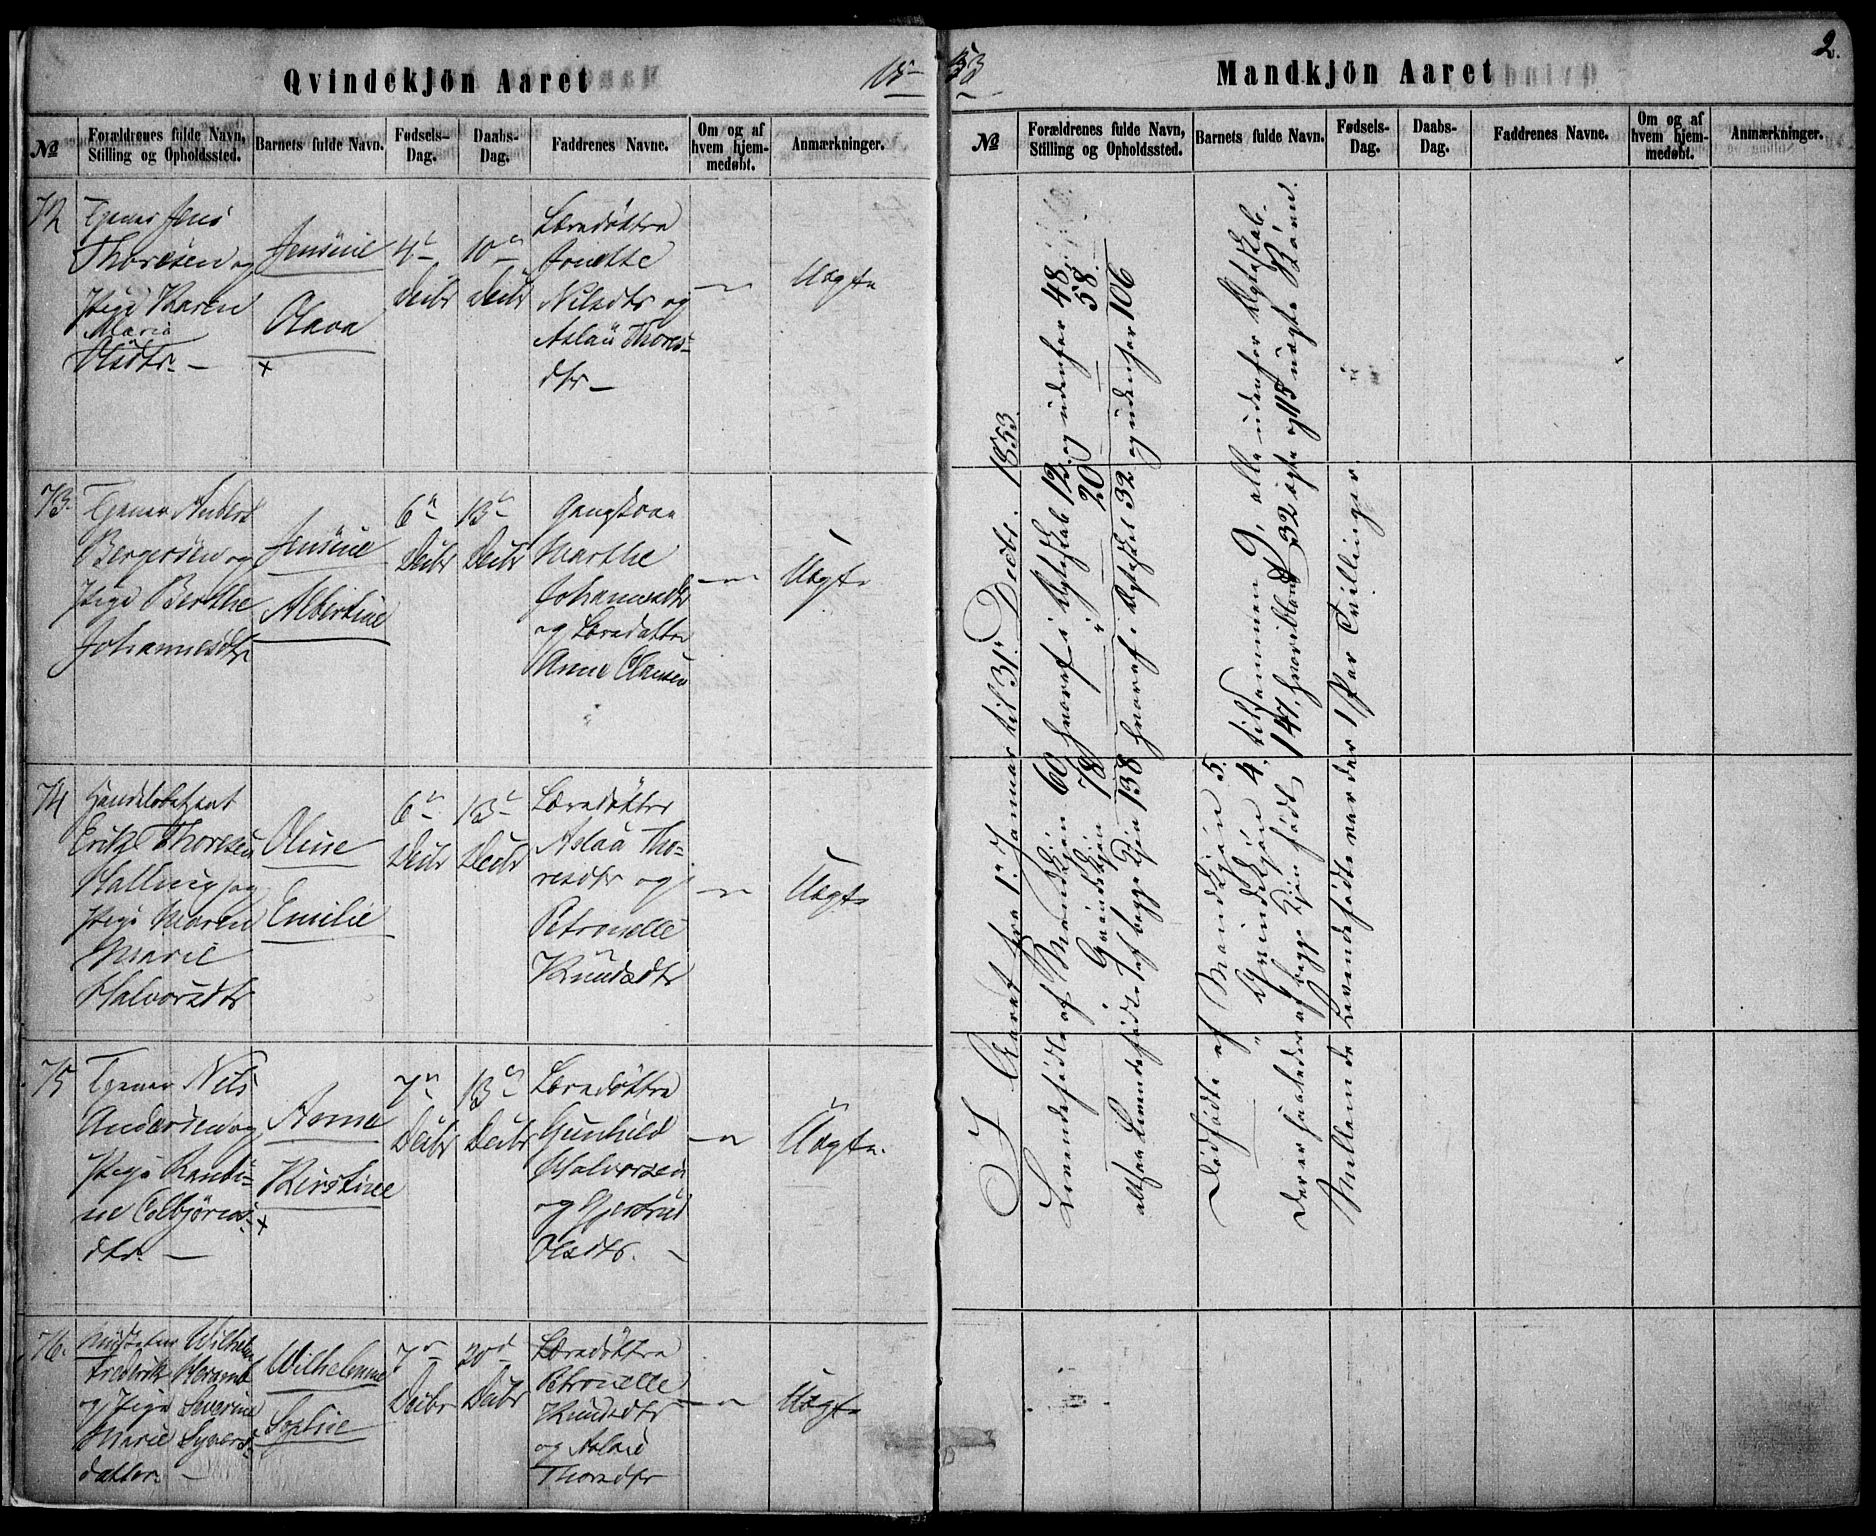 Qvindekjön Aaret 18
№
Forældrenes fulde Navn,
Stilling og Opholdssted.
Barnets fulde Navn.
Fødsels-
Dag.
Daabs-
Dag.
Faddrenes Navne.
Om og af
hvem hjem-
medøbt.
Anmærkninger.
72
Tjener Jens
Thoresen og
Pige Karen
Maria
Olsdtr. —
Jensine
Olava
x
4de
Decbr
10de
Decbr
Læredøttre
Nilsdtr og
Aslau Thores-
dtr —
—"—
Uægte
73.
Tjener
Bergersen og
Pige Berthe
Johannesdtr
Jensine
Albertine
6te
Decbr
13de
Decbr
Gangkone
Marthe
Johannesdtr
og Læredattre
Anne Clausen
—"—
Uægte
74
Handelsbetjent
Erik Thoresen
Halling og
Pige Maren
Marie
Halvorsdtr
Oline
Emilie
6te
Decbr
13de
Decbr
Læredøttre
Aslau Tho-
resdtr og
Petronelle
Knudsdtr
—"—
Uægte
75
Tjener Nils
Andersen og
Pige Randi-
ne Colbjørns-
dtr. —
Anne
Kirstine
x
7de
Decbr
13de
Decbr
Læredøttre
Gunhild
Halvorsen
og Gjertrud
Olsdtr. —
—"—
Uægte.
76.
Wilhelm
Frederik
og Pige Severine
Marie Syvers-
datter. —
Wilhelmine
Sophie
7de
Decbr
20de
Decbr
Læredøttre
Petronelle
Knudsdtr
og Aslau
Thoresdtr
—"—
Uægte
53
Mandkjön Aaret
2.
№
Forældrenes fulde Navn,
Stilling og Opholdssted.
Barnets fulde Navn.
Fødsels-
Dag.
Daabs-
Dag.
Faddrenes Navne.
Om og af
hvem hjem-
medøbt.
Anmærkninger.
I Aaret fra 1ste Januar til 31te Decbr. 1853.
Levendefødte af Mandkjön 60 hvoraf i Ægteskab 12 og udenfor 48
" Qvindekjön 78 — " — 20 — " — 58.
altsaa Levendefødte af begge Kjön 138 hvoraf i Ægteskab 32 og udenfor 106
Dødfødte af Mandkjön 5.
— " — Qvindekjön 4, tilsammen 9, alle udenfor Ægteskab.
Der er saaledes af begge Kjön født 147, hvoriblandt 32 ægte og 115 uægte Börn.
Mellem de Levendefødte var der 1 Par Tvillinger.